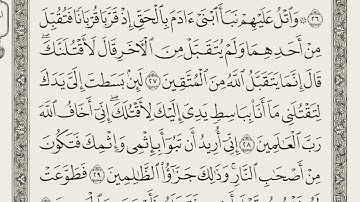 ۝٢٦ ۞ وَٱتۡلُ عَلَيۡهِمۡ نَبَأَ ٱبۡنَيۡ ءَادَمَ بِٱلۡحَقِّ إِذۡ قَرَّبَا قُرۡبَانٗا فَتُقُبِّلَ
مِنۡ أَحَدِهِمَا وَلَمۡ يُتَقَبَّلۡ مِنَ ٱلۡأٓخَرِ قَالَ لَأَقۡتُلَنَّكَۖ
قَالَ إِنَّمَا يَتَقَبَّلُ ٱللَّهُ مِنَ ٱلۡمُتَّقِينَ ۝٢٧ لَئِنۢ بَسَطتَ إِلَيَّ يَدَكَ
لِتَقۡتُلَنِي مَآ أَنَا۠ بِبَاسِطٖ يَدِيَ إِلَيۡكَ لِأَقۡتُلَكَۖ إِنِّيٓ أَخَافُ ٱللَّهَ
رَبَّ ٱلۡعَٰلَمِينَ ۝٢٨ إِنِّيٓ أُرِيدُ أَن تَبُوٓأَ بِإِثۡمِي وَإِثۡمِكَ فَتَكُونَ
مِنۡ أَصۡحَٰبِ ٱلنَّارِۚ وَذَٰلِكَ جَزَٰٓؤُاْ ٱلظَّٰلِمِينَ ۝٢٩ فَطَوَّعَتۡ